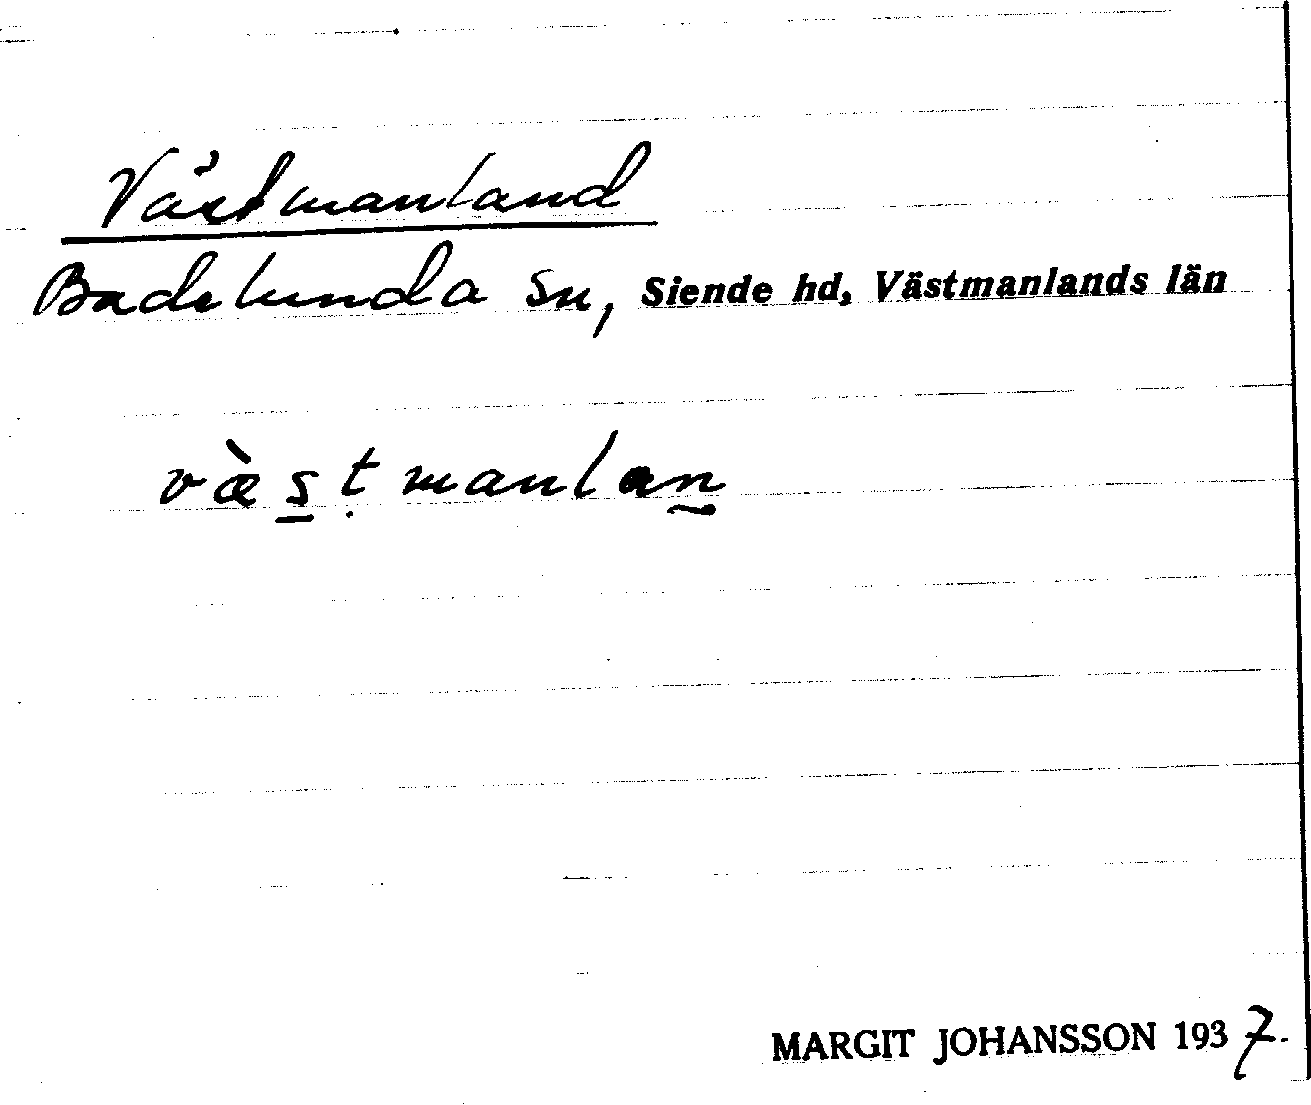 Västmanland
Badelunda sn, Siende hd, Västmanlands län
væ̀s̲ṭmanlan̰
MARGIT JOHANSSON 1937.